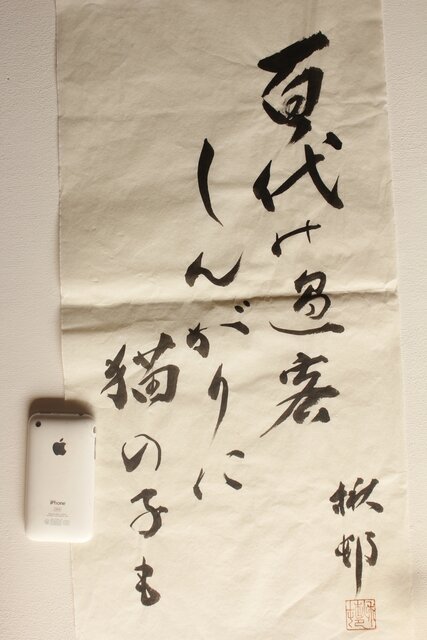 百代の過客
しんがりに
猫の子も
楸邨
iPhone